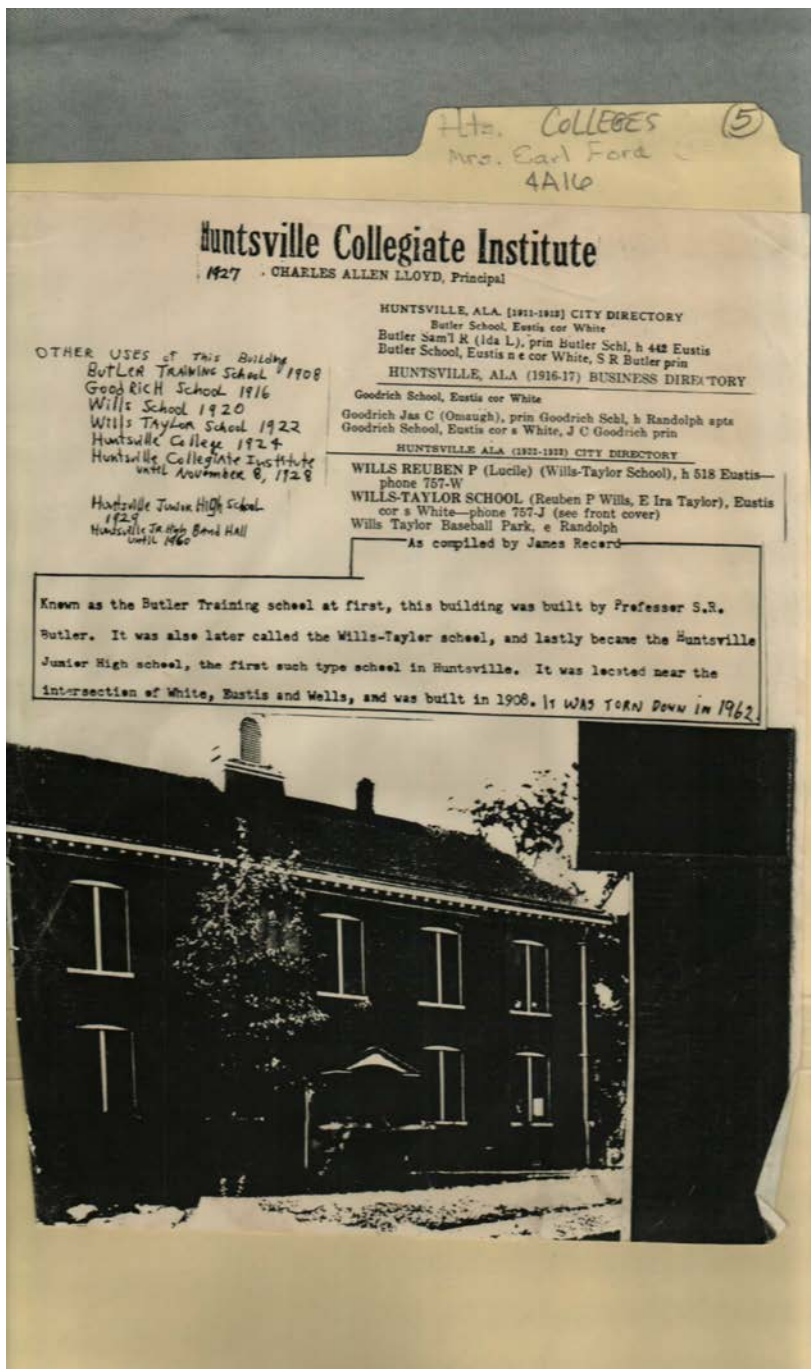 Htz. COLLEGES (5)
Mrs. Earl Ford
4A16
Huntsville Collegiate Institute
1927 . CHARLES ALLEN LLOYD, Principal
OTHER USES of This Building
BUTLER TRAINING School 1908
GOODRICH School 1916
Wills School 1920
Wills TAYLOR School 1922
Huntsville College 1924
Huntsville Collegiate Institute
until November 8, 1928
Huntsville Junior High School
1929
Huntsville JR High Band HALL
until 1960
HUNTSVILLE, ALA. [1911-1912] CITY DIRECTORY
Butler School, Eustis cor White
Butler Sam'l R (Ida L), prin Butler Schl, h 442 Eustis
Butler School, Eustis n e cor White, S R Butler prin
HUNTSVILLE, ALA (1916-17) BUSINESS DIRECTORY
Goodrich School, Eustis cor White
Goodrich Jas C (Omaugh), prin Goodrich Schl, h Randolph apts
Goodrich School, Eustis cor s White, J C Goodrich prin
HUNTSVILLE ALA (1922-1923) CITY DIRECTORY
WILLS REUBEN P (Lucile) (Wills-Taylor School), h 518 Eustis—
phone 757-W
WILLS-TAYLOR SCHOOL (Reuben P Wills, E Ira Taylor), Eustis
cor s White—phone 757-J (see front cover)
Wills Taylor Baseball Park, e Randolph
As compiled by James Record
Known as the Butler Training school at first, this building was built by Professor S.R.
Butler. It was also later called the Wills-Taylor school, and lastly became the Huntsville
Junior High school, the first such type school in Huntsville. It was located near the
intersection of White, Eustis and Wells, and was built in 1908. IT WAS TORN DOWN IN 1962.